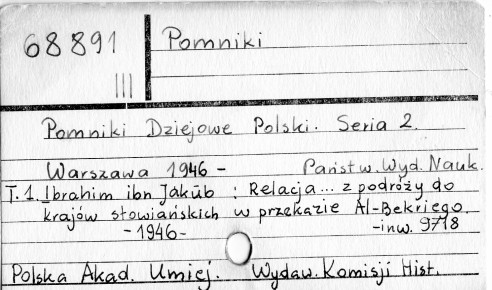 68891
III
Pomniki
Pomniki Dziejowe Polski. Seria 2.
Warszawa 1946 - Państw. Wyd. Nauk.
T. 1. Ibrahim ibn Jakūb : Relacja... z podróży do
krajów słowiańskich w przekazie Al-Bekriego.
-1946- -inw. 9718
Polska Akad. Umiej. Wydaw. Komisji Hist.